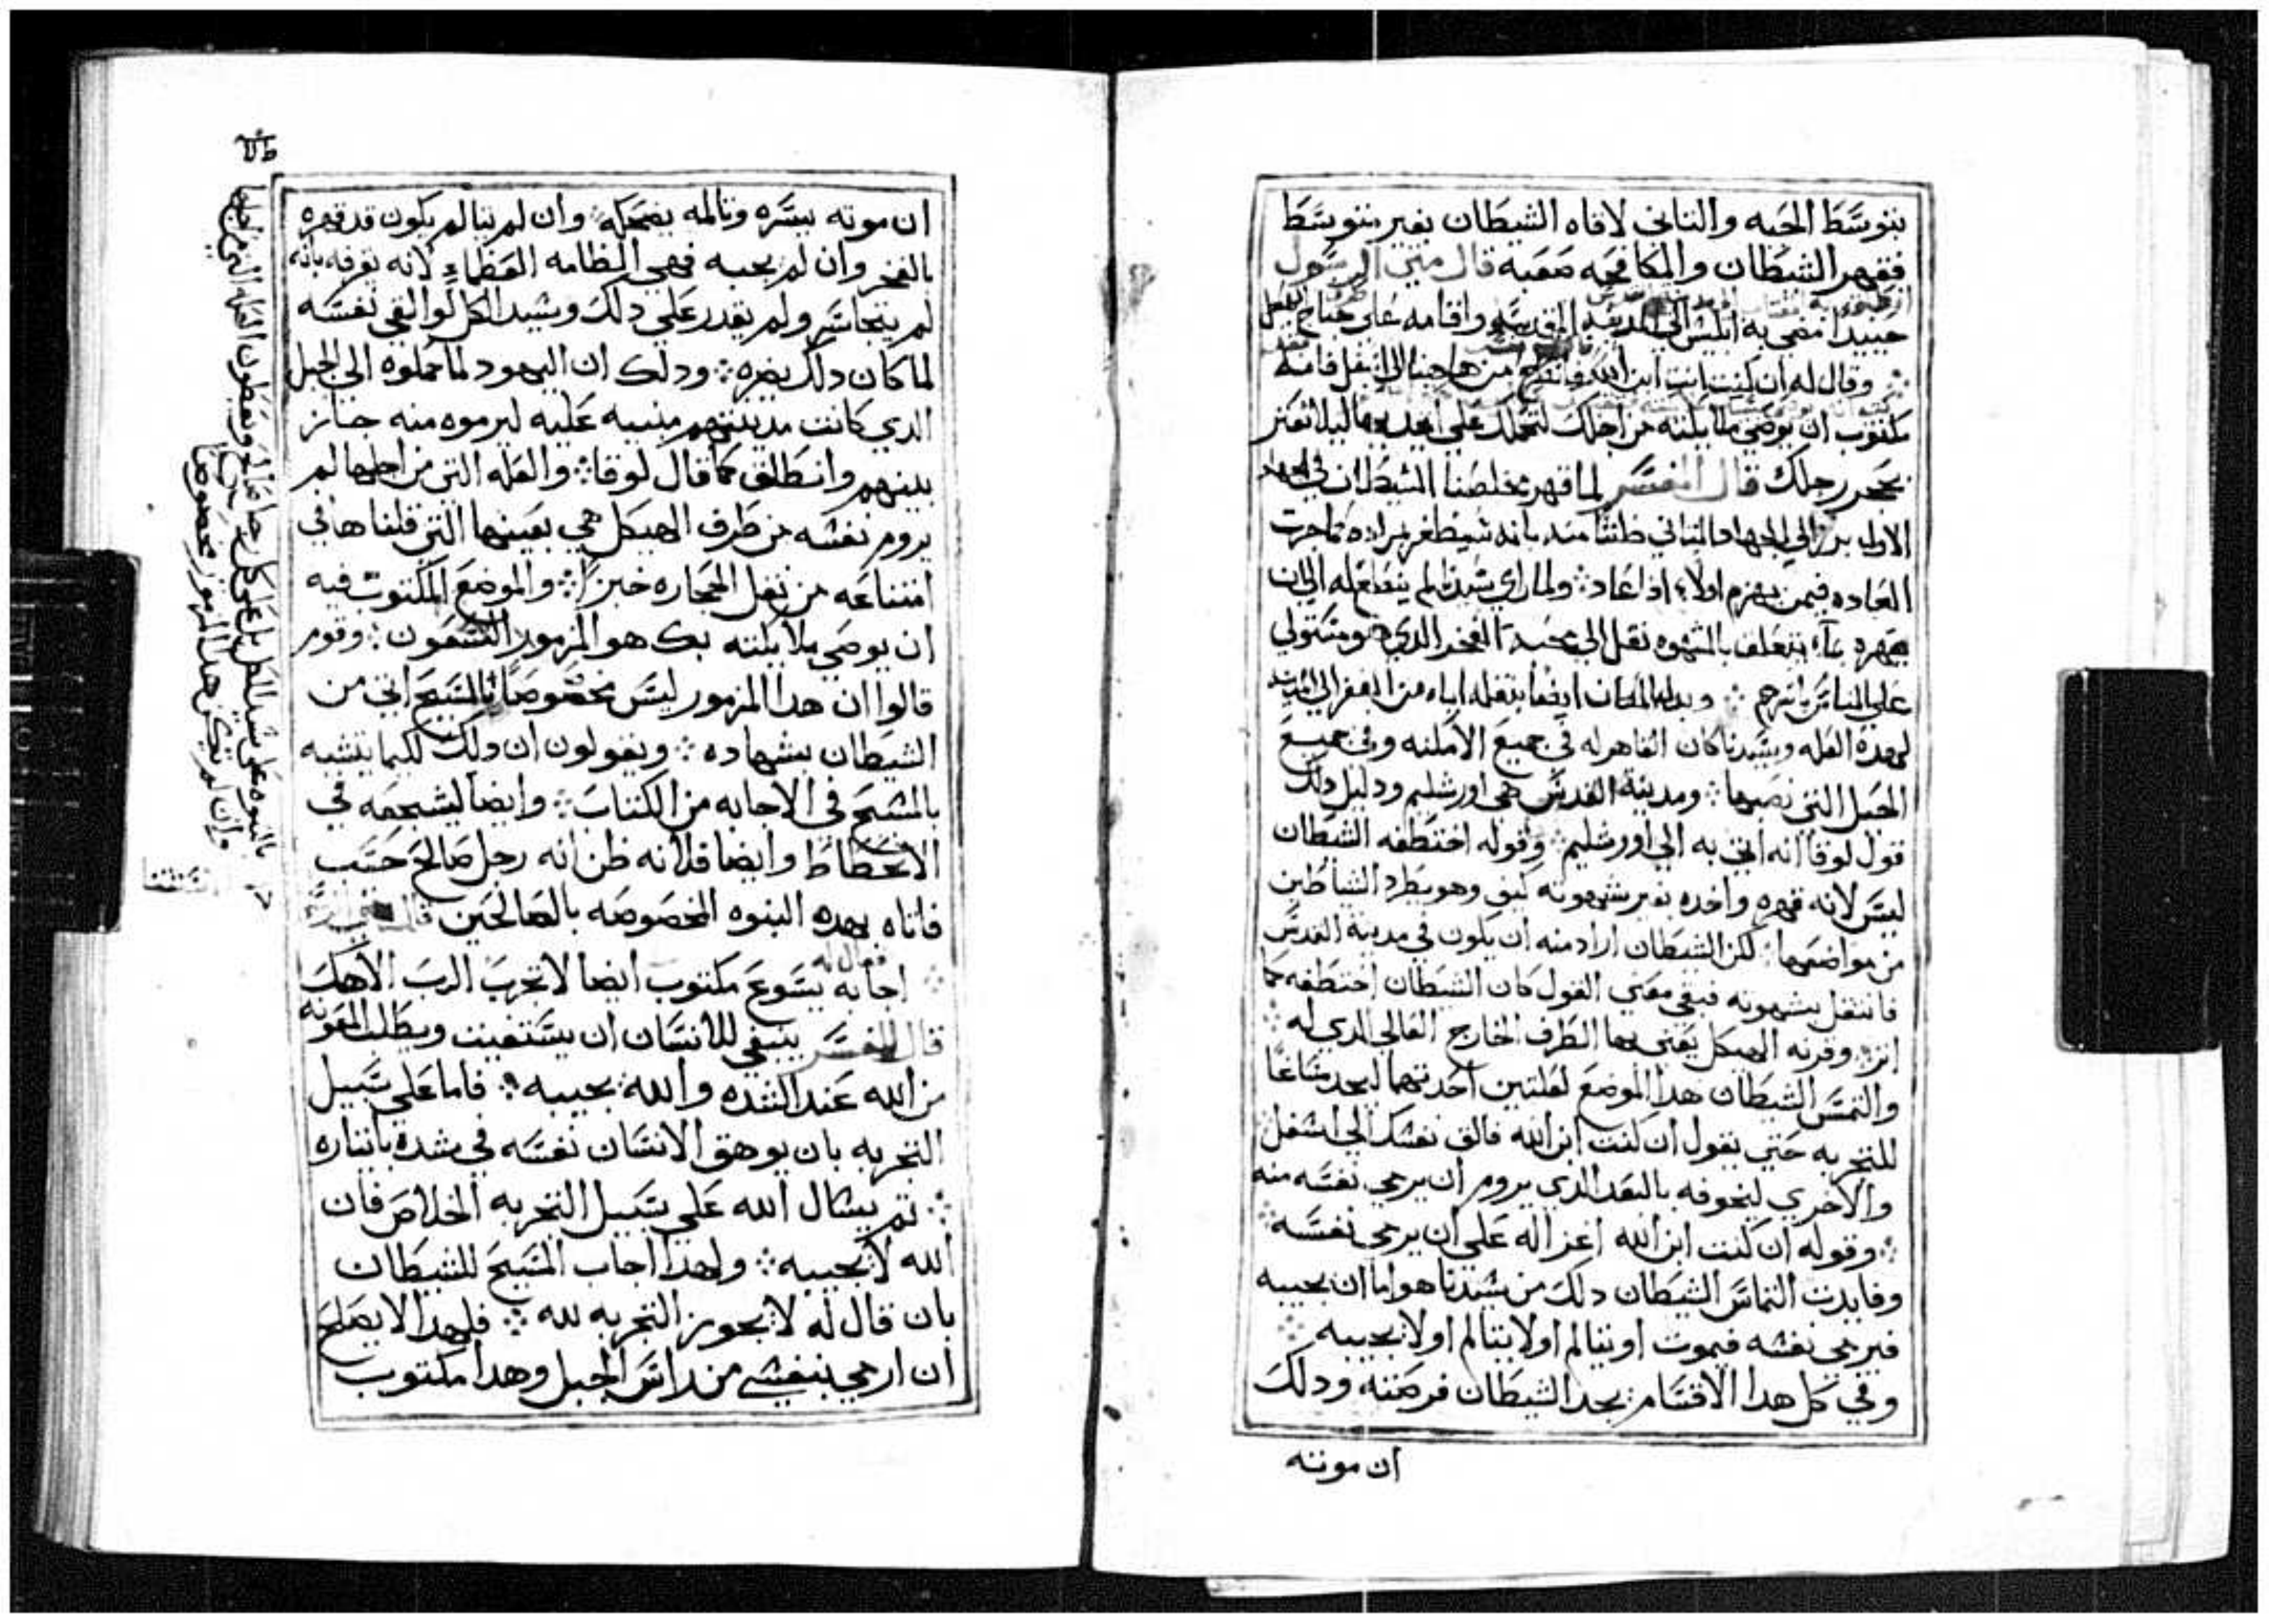 بتوسط الحيه والتاني لاقاه الشيطان بغير بتوسط
فقهر الشيطان والمكافحه صعبه قال متي الرسول
حينيدا مضي به ابليس الي المدينه المقدسه واقامه علي جناح
وقال له ان كنت انت ابن الله من هاهنا الي اسفل فانه
مكتوب ان يوصي ملايكته من اجلك لتحملك علي ايديها ليلا تعتر
بحجر رجلك قال المفسر لما قهر مخلصنا الشيطان في الجهاد
الاول برز الي الجهاد التاني ظنا منه بانه سيظفر بمراده كما جرت
العاده فيمن يهزم اولا اذا عاد ولما راي سيدنا لم ينطاع له الي ان
يقهره بما يتعلق بالشهوه نقل الي محبة الفخر الدي هو مستولي
علي الناس باسرهم وبدل المكان ايضا بنقله اياه من القفر الي المدينه
لهده العله وسيدنا كان القاهر له في جميع الامكنه وفي جميع
الحيل التي نصبها ومدينة القدس هي اورشليم ودليل دلك
قول لوقا انه اتي به الي اورشليم وقوله اختطفه الشيطان
ليس لانه قهره واخده بغير شهوته كيف وهو يطرد الشياطين
من مواضعها لكن الشيطان اراد منه ان يكون في مدينة القدس
فانتقل بشهوته فبقي معني القول كان الشيطان اختطفه كما
اتر وقرنه الهيكل يعني بها الطرف الخارج العالي الدي له
والتمس الشيطان هدا الموضع لعلتين احدتهما ليجد مساغا
للتجربه حتي يقول ان كنت ابن الله فالق نفسك الي اسفل
والاخري ليخوفه بالبعد الدي يروم ان يرمي نفسه منه
وقوله ان كنت ابن الله اغرا له علي ان يرمي نفسه
وفايدت التماس الشيطان دلك من سيدنا هو اما ان يجيبه
فيرمي نفسه فيموت او يتالم او لا يتالم او لا يجيبه
وفي كل هدا الاقسام يجد الشيطان فرصته ودلك
ان موته
ان موته يسره وتالمه يضحكه وان لم يتالم يكون قد قهره
بالفخر وان لم يجبه فهي الطامه العظماء لانه يعرفه بانه
لم يتجاسر ولم يقدر علي دلك وسيد الكل لو القي نفسه
لما كان دلك يضره ودلك ان اليهود لما حملوه الي الجبل
الدي كانت مدينتهم مبنيه عليه ليرموه منه جاز
بينهم وانطلق كما قال لوقا والعله التي من اجلها لم
يروم نفسه من طرف الهيكل هي بعينها التي قلناها في
امتناعه من نقل الحجاره خبزا والموضع المكتوب فيه
ان يوصي ملايكته بك هو المزمور التسعون وقوم
قالوا ان هدا المزمور ليس مخصوصا بالمسيح اتي من
الشيطان بشهاده ويقولون ان دلك لكيما يتشبه
بالمسيح في الاجابه من الكتاب وايضا ليشجعه في
الانحطاط وايضا فلانه ظن انه رجل صالح حسب
فاتاه بهده النبوه المخصوصه بالصالحين
فقال له
اجابه يسوع مكتوب ايضا لا تجرب الرب الاهك
قال المفسر ينبغي للانسان ان يستغيت ويطلب المعونه
من الله عند الشده والله يجيبه فاما علي سبيل
التجربه بان يوهق الانسان نفسه في شدة باتياره
تم يسال الله علي سبيل التجربه الخلاص فان
الله لا يجيبه ولهدا اجاب المسيح للشيطان
بان قال له لا يجوز التجربه لله فلهدا لا يصلح
ان ارمي بنفسي من راس الجبل وهدا مكتوب